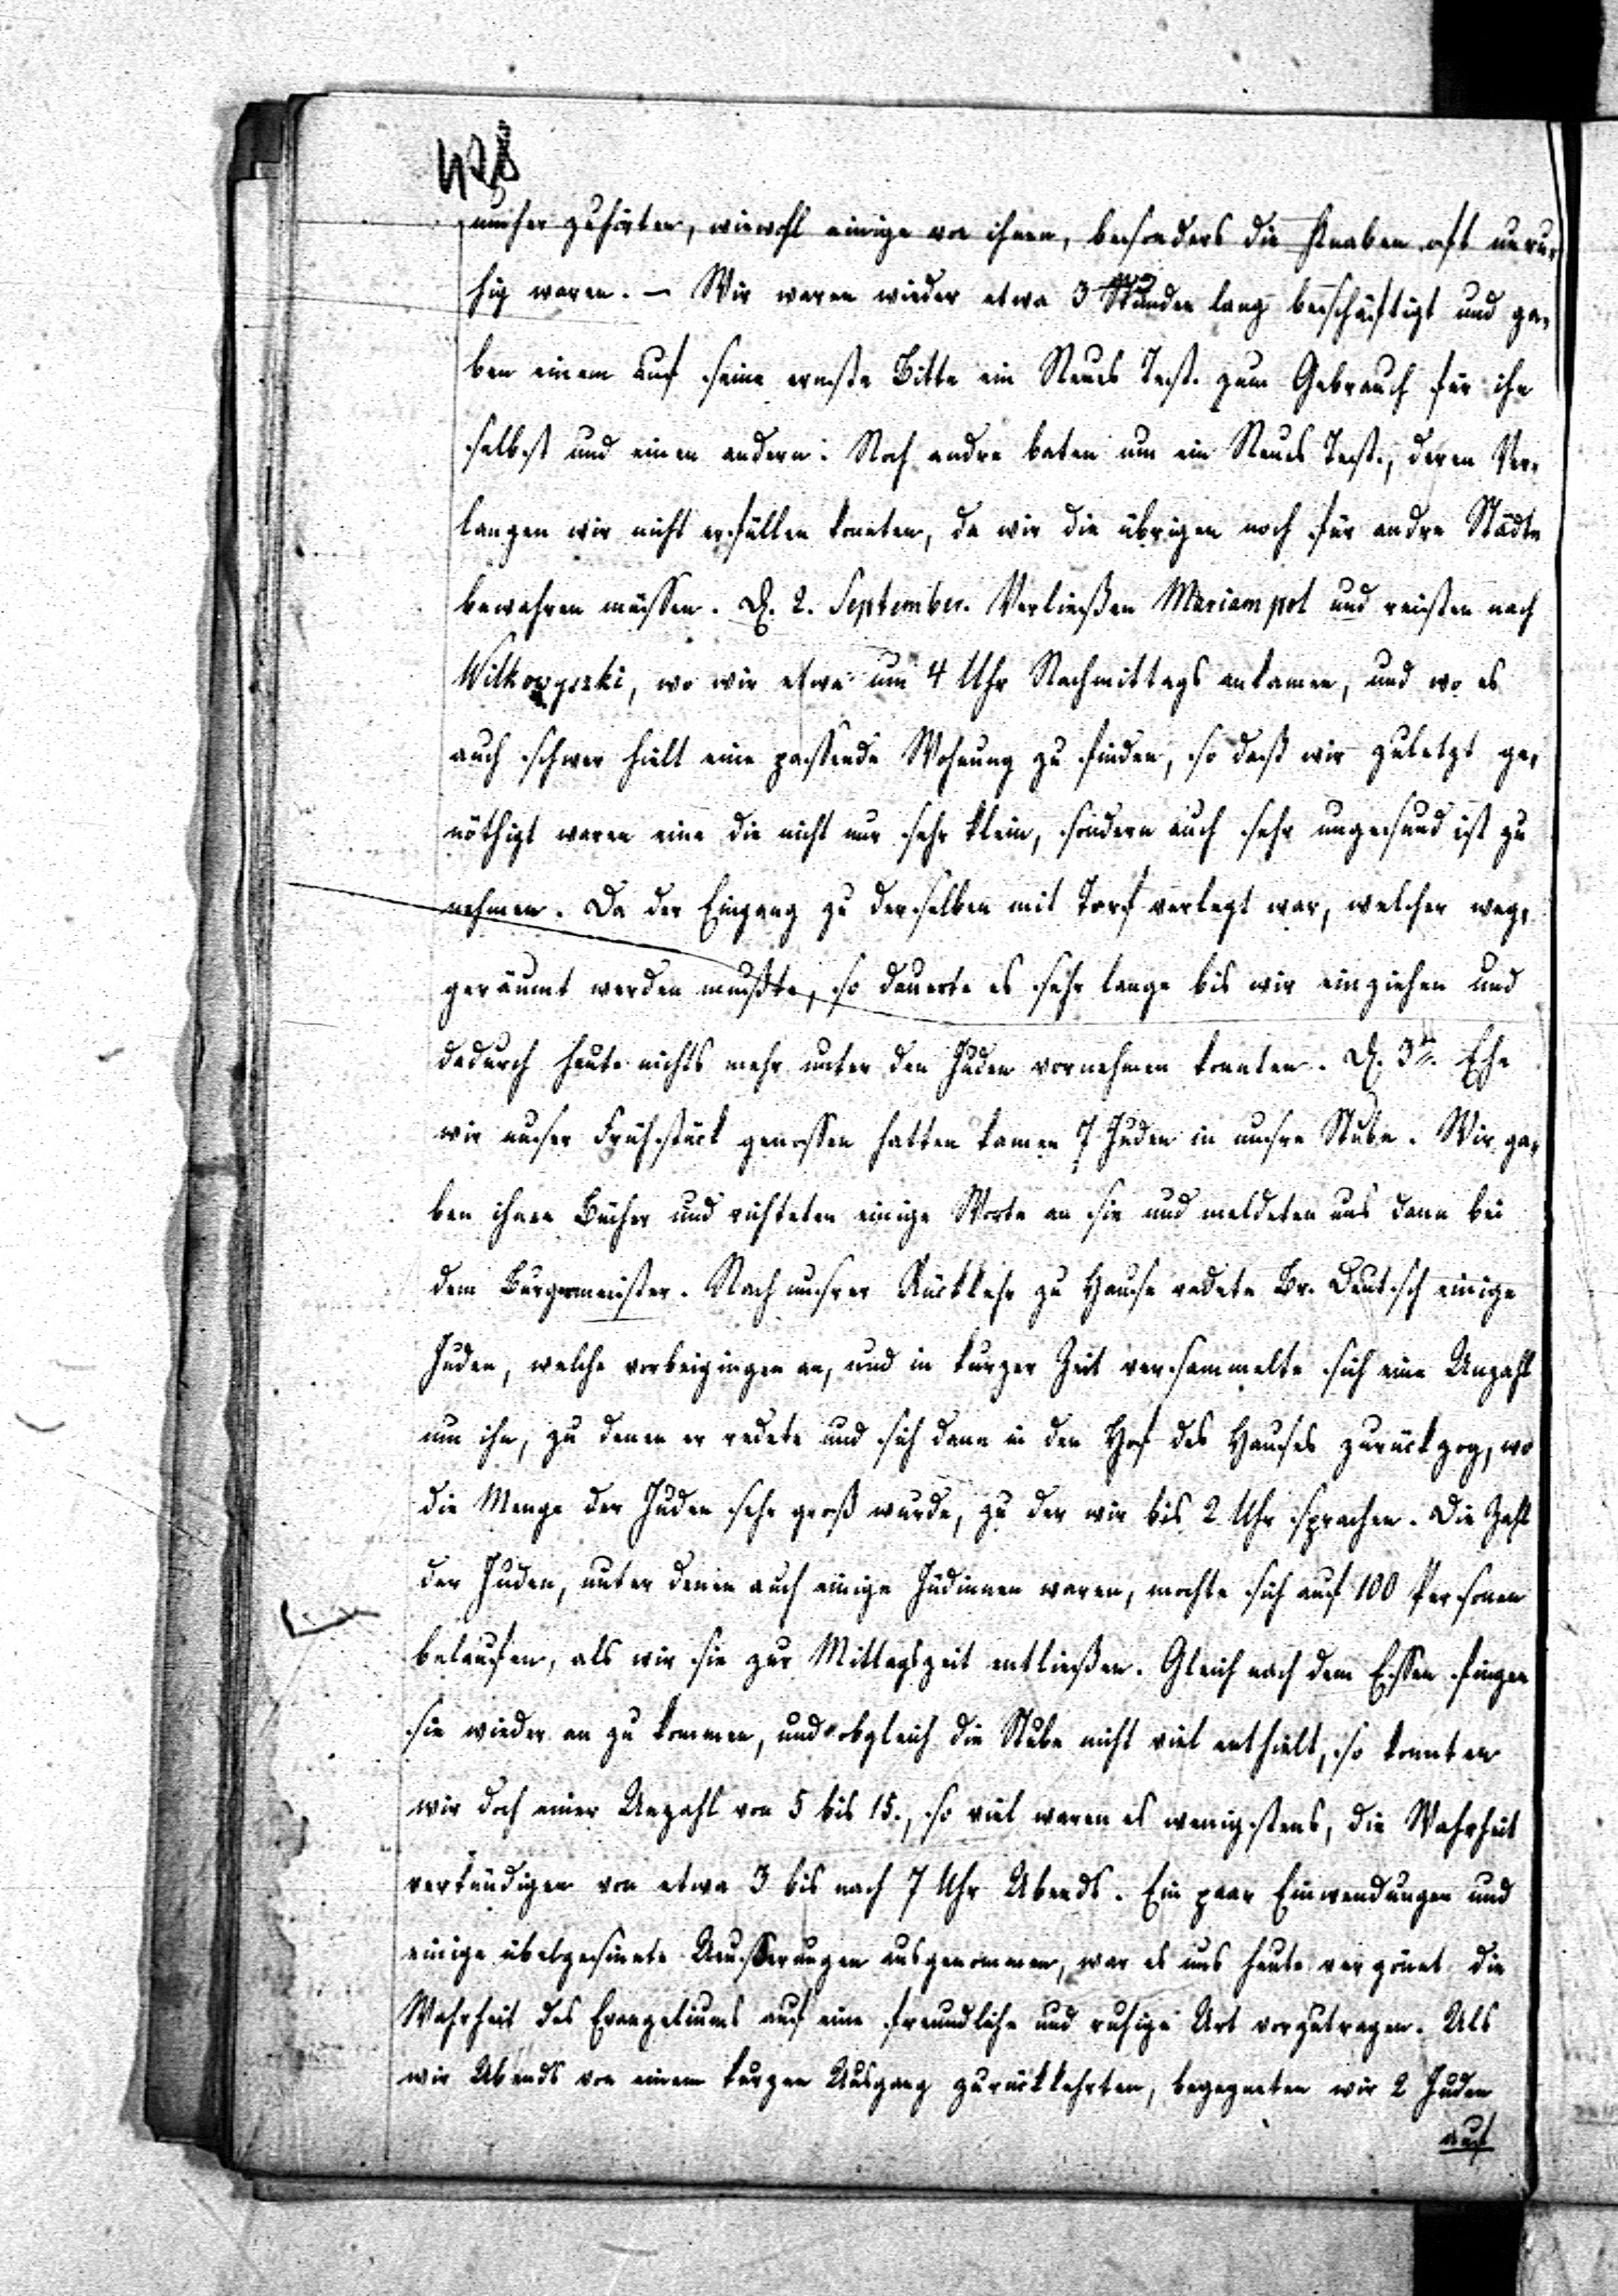 428
mehr zuhörten, wiewohl einige von ihnen, besonders die Knaben oft unru-
hig waren. — Wir waren wieder etwa 3 Stunden lang beschäftigt und ga-
ben einem auf seine ernste Bitte ein Neues Test. zum Gebrauch für ihn
selbst und einen andern. Noch andre baten um ein Neues Test., deren Ver-
langen wir nicht erfüllen konnten, da wir die übrigen noch für andre Städte
bewahren müssen. D. 2. September. Verließen Mariampol und reisten nach
Wilkowyszki, wo wir etwa um 4 Uhr Nachmittags ankamen, und wo es
auch schwer hielt eine passende Wohnung zu finden, so daß wir zuletzt ge-
nöthigt waren eine die nicht nur sehr klein, sondern auch sehr ungesund ist zu
nehmen. Da der Eingang zu derselben mit Torf verlegt war, welcher weg-
geräumt werden mußte, so dauerte es sehr lange bis wir einziehen und
dadurch heute nichts mehr unter den Juden vornehmen konnten. D. 3tn. Ehe
wir unser Frühstück genossen hatten kamen 7 Juden in unsre Stube. Wir ga-
ben ihnen Bücher und richteten einige Worte an sie und meldeten uns dann bei
dem Burgermeister. Nach unsrer Rückkehr zu Hause redete Br. Deutsch einige
Juden, welche vorbeigingen an, und in kurzer Zeit versammelte sich eine Anzahl
um ihn, zu denen er redete und sich dann in den Hof des Hauses zurückzog, wo
die Menge der Juden sehr groß wurde, zu der wir bis 2 Uhr sprachen. Die Zahl
der Juden, unter denen auch einige Jüdinnen waren, mochte sich auf 100 Personen
belaufen, als wir sie zur Mittagszeit entließen. Gleich nach dem Essen fingen
sie wieder an zu kommen, und obgleich die Stube nicht viel enthielt, so konnten
wir doch einer Anzahl von 5 bis 15., so viel waren es wenigstens, die Wahrheit
verkündigen von etwa 3 bis nach 7 Uhr Abends. Ein paar Einwendungen und
einige übelgesinnte Aeusserungen ausgenommen, war es uns heute vergönnt die
Wahrheit des Evangeliums auf eine freundliche und ruhige Art vorzutragen. Als
wir Abends von einem kurzen Ausgang zurückkehrten, begegneten wir 2 Juden
auf